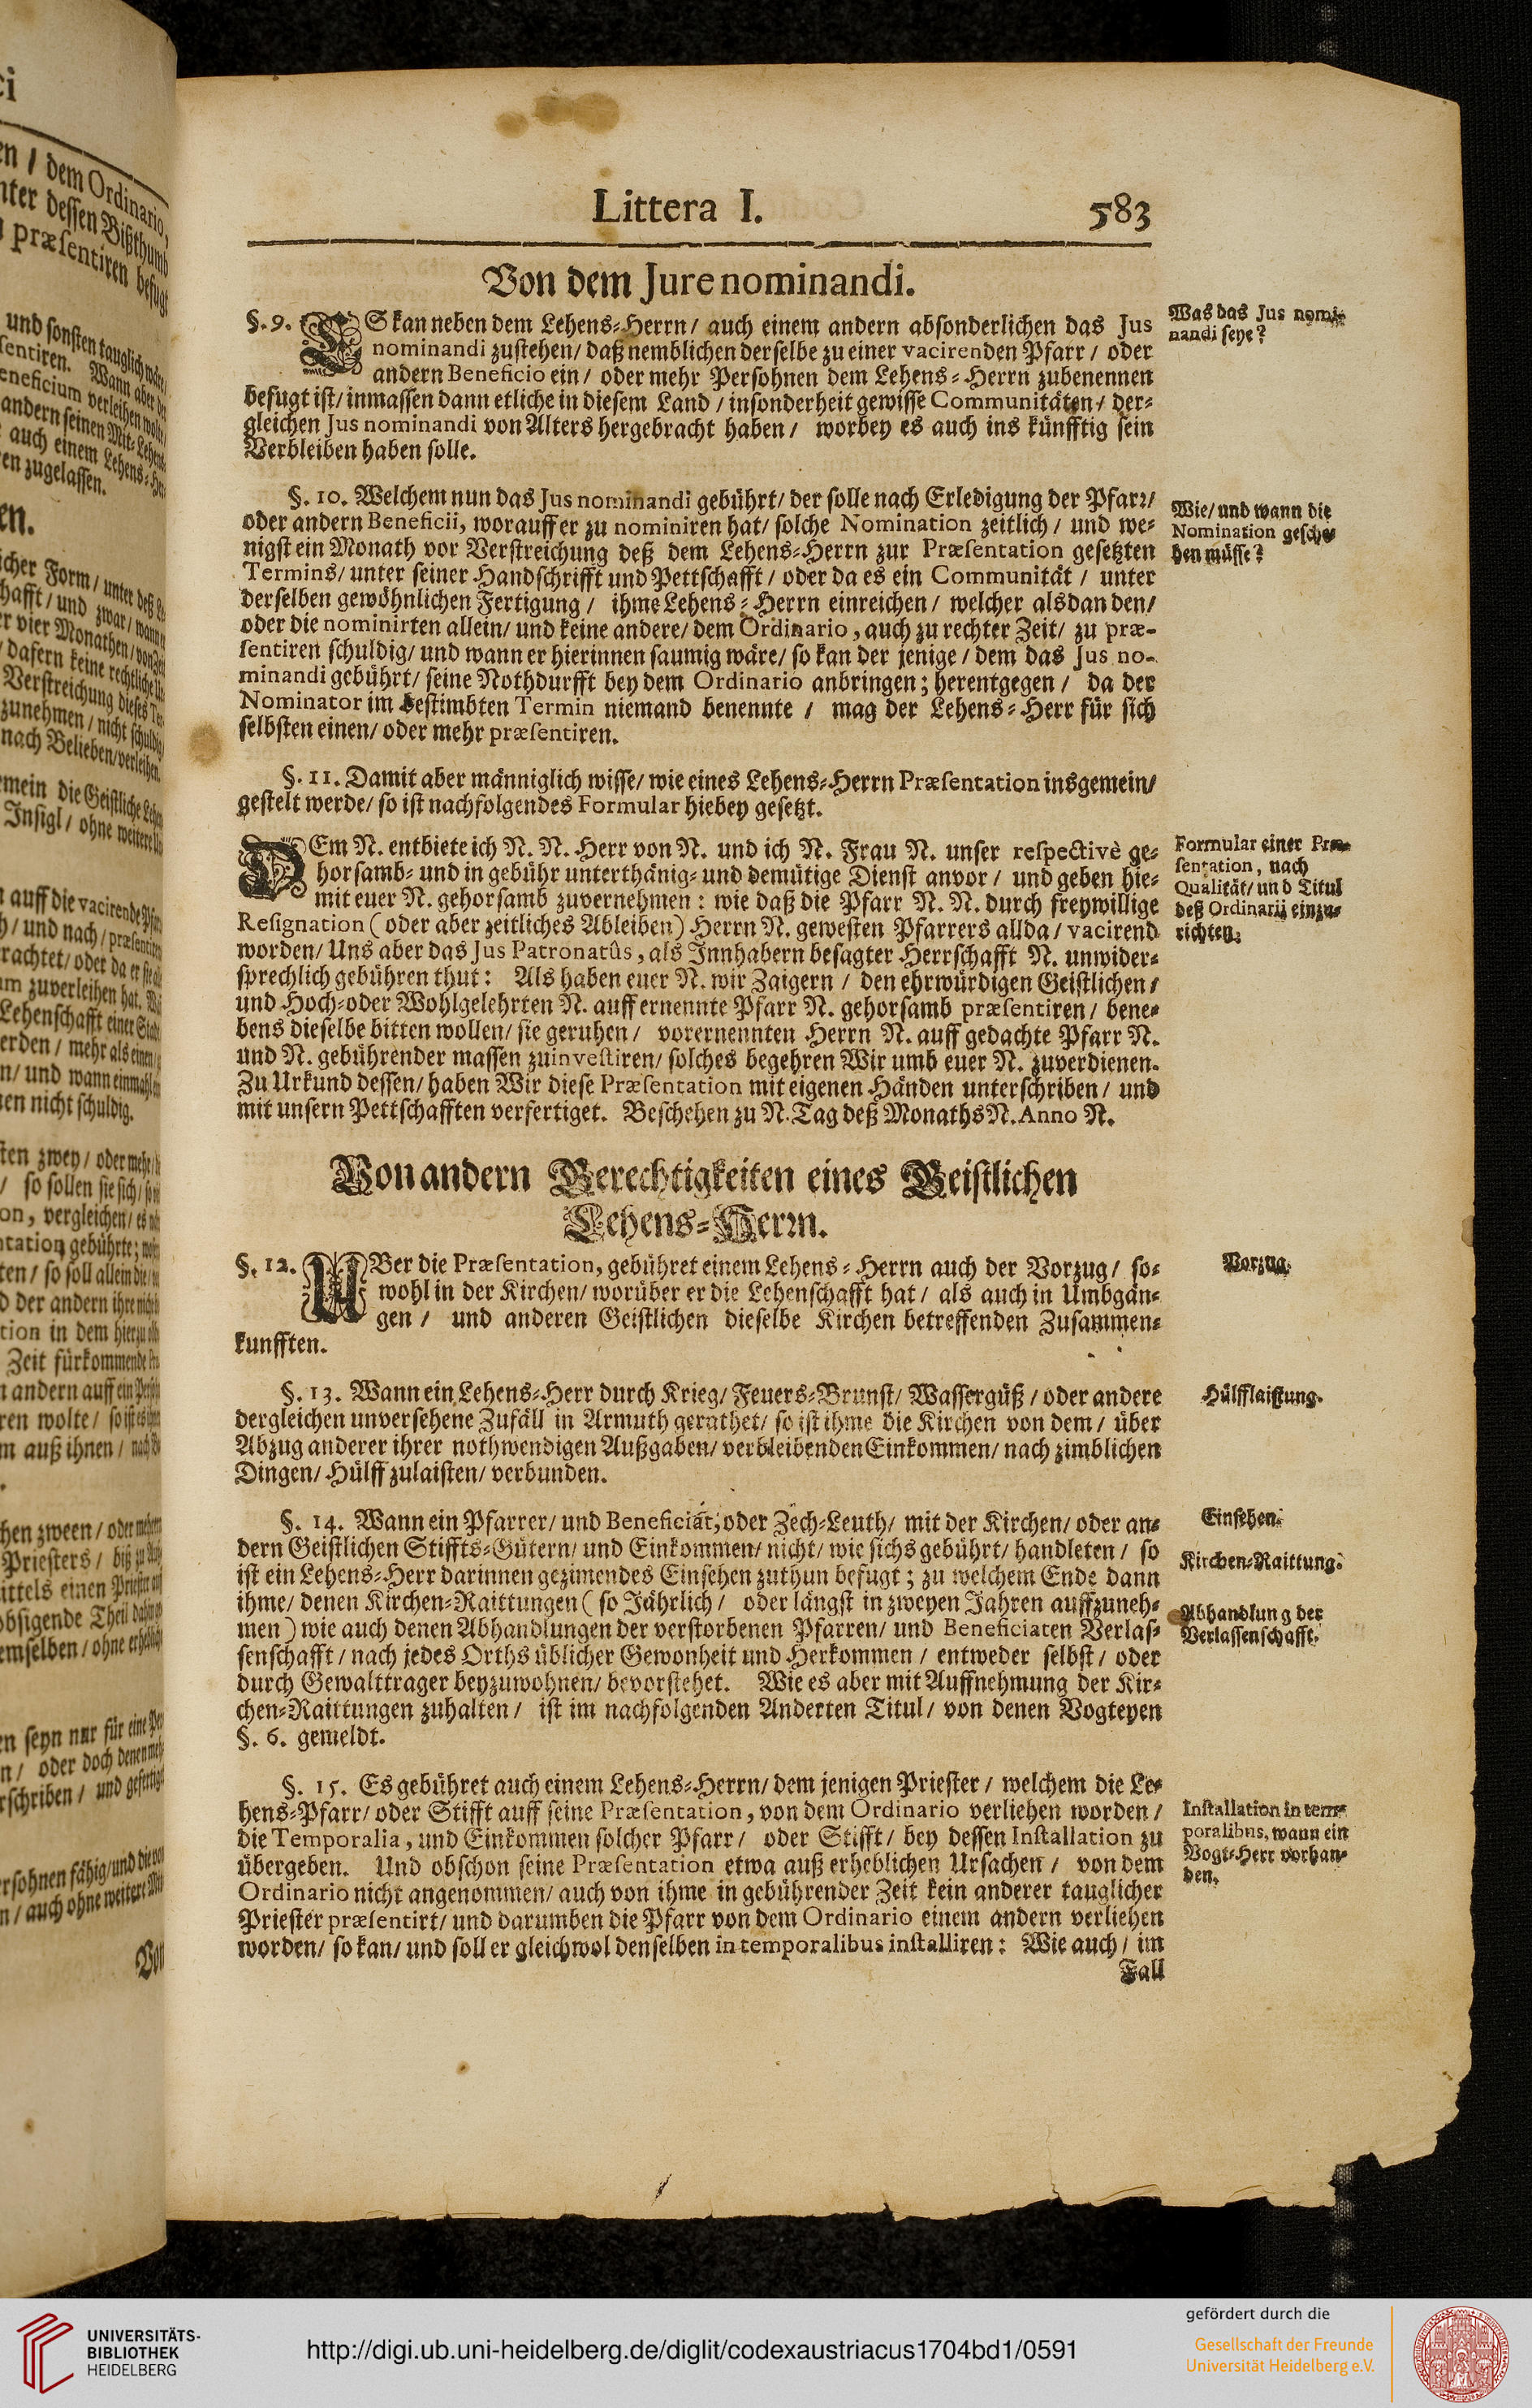 Littera I. 583
Von dem Jure nominandi.
§. 9. ES kan neben dem Lehens-Herrn/ auch einem andern absonderlichen das Jus
nominandi zustehen/ daß nemblichen derselbe zu einer vacirenden Pfarr / oder
andern Beneficio ein / oder mehr Persohnen dem Lehens-Herrn zubenennen
befugt ist/ inmassen dann etliche in diesem Land / insonderheit gewisse Communitäten / der-
gleichen Jus nominandi von Alters hergebracht haben / worbey es auch ins künfftig sein
Verbleiben haben solle.
Was das Jus nomi-
nandi seye?
§. 10. Welchem nun das Jus nominandi gebührt/ der solle nach Erledigung der Pfarr/
oder andern Beneficii, worauff er zu nominiren hat/ solche Nomination zeitlich / und we-
nigst ein Monath vor Verstreichung deß dem Lehens-Herrn zur Præsentation gesetzten
Termins/ unter seiner Handschrifft und Pettschafft / oder da es ein Communität / unter
derselben gewöhnlichen Fertigung / ihme Lehens-Herrn einreichen / welcher alsdan den/
oder die nominirten allein/ und keine andere/ dem Ordinario, auch zu rechter Zeit/ zu præ-
sentiren schuldig/ und wann er hierinnen saumig wäre/ so kan der jenige / dem das Jus no-
minandi gebührt/ seine Nothdurfft bey dem Ordinario anbringen; herentgegen / da der
Nominator im bestimbten Termin niemand benennte / mag der Lehens-Herr für sich
selbsten einen/ oder mehr præsentiren.
Wie/ und wann die
Nomination gesche-
hen müsse?
§. 11. Damit aber männiglich wisse/ wie eines Lehens-Herrn Præsentation insgemein/
gestelt werde/ so ist nachfolgendes Formular hiebey gesetzt.
DEm N. entbiete ich N. N. Herr von N. und ich N. Frau N. unser respectivè ge-
horsamb- und in gebühr unterthänig- und demütige Dienst anvor / und geben hie-
mit euer N. gehorsamb zuvernehmen : wie daß die Pfarr N. N. durch freywillige
Resignation ( oder aber zeitliches Ableiben ) Herrn N. gewesten Pfarrers allda / vacirend
worden/ Uns aber das Jus Patronatûs, als Innhabern besagter Herrschafft N. unwider-
sprechlich gebühren thut : Als haben euer N. wir Zaigern / den ehrwürdigen Geistlichen /
und Hoch- oder Wohlgelehrten N. auff ernennte Pfarr N. gehorsamb præsentiren / bene-
bens dieselbe bitten wollen/ sie geruhen / vorernennten Herrn N. auff gedachte Pfarr N.
und N. gebührender massen zuinvestiren/ solches begehren Wir umb euer N. zuverdienen.
Zu Urkund dessen/ haben Wir diese Præsentation mit eigenen Händen unterschriben / und
mit unsern Pettschafften verfertiget. Beschehen zu N. Tag deß Monaths N. Anno N.
Formular einer Præ-
sentation, nach
Qualität/ und Titul
deß Ordinarij einzu-
richten.
Von andern Gerechtigkeiten eines Geistlichen
Lehens-Herrn.
§. 12. UBer die Præsentation, gebühret einem Lehens-Herrn auch der Vorzug / so-
wohl in der Kirchen/ worüber er die Lehenschafft hat / als auch in Umbgän-
gen / und anderen Geistlichen dieselbe Kirchen betreffenden Zusammen-
kunfften.
Vorzug.
§. 13. Wann ein Lehens-Herr durch Krieg/ Feuers-Brunst/ Wassergüß / oder andere
dergleichen unversehene Zufäll in Armuth gerathet/ so ist ihme die Kirchen von dem / über
Abzug anderer ihrer nothwendigen Außgaben/ verbleibenden Einkommen/ nach zimblichen
Dingen/ Hülff zulaisten/ verbunden.
Hülfflaistung.
§. 14. Wann ein Pfarrer/ und Beneficiat, oder Zech-Leuth/ mit der Kirchen/ oder an-
dern Geistlichen Stiffts-Gütern/ und Einkommen/ nicht/ wie sichs gebührt/ handleten / so
ist ein Lehens-Herr darinnen gezimendes Einsehen zuthun befugt ; zu welchem Ende dann
ihme/ denen Kirchen-Raittungen ( so Jährlich / oder längst in zweyen Jahren auffzuneh-
men ) wie auch denen Abhandlungen der verstorbenen Pfarren/ und Beneficiaten Verlas-
senschafft / nach jedes Orths üblicher Gewonheit und Herkommen / entweder selbst / oder
durch Gewalttrager beyzuwohnen/ bevorstehet. Wie es aber mit Auffnehmung der Kir-
chen-Raittungen zuhalten / ist im nachfolgenden Anderten Titul / von denen Vogteyen
§. 6. gemeldt.
Einsehen.
Kirchen-Raittung.
Abhandlung der
Verlassenschafft.
§. 15. Es gebühret auch einem Lehens-Herrn/ dem jenigen Priester / welchem die Le-
hens-Pfarr/ oder Stifft auff seine Præsentation, von dem Ordinario verliehen worden /
die Temporalia, und Einkommen solcher Pfarr / oder Stifft / bey dessen Installation zu
übergeben. Und obschon seine Præsentation etwa auß erheblichen Ursachen / von dem
Ordinario nicht angenommen/ auch von ihme in gebührender Zeit kein anderer tauglicher
Priester præsentirt/ und darumben die Pfarr von dem Ordinario einem andern verliehen
worden/ so kan/ und soll er gleichwol denselben in temporalibus installiren : Wie auch / im
Fall
Installation in tem-
poralibus, wann ein
Vogt-Herr vorhan-
den.
UNIVERSITÄTS-
BIBLIOTHEK
HEIDELBERG
http://digi.ub.uni-heidelberg.de/diglit/codexaustriacus1704bd1/0591
gefördert durch die
Gesellschaft der Freunde
Universität Heidelberg e.V.